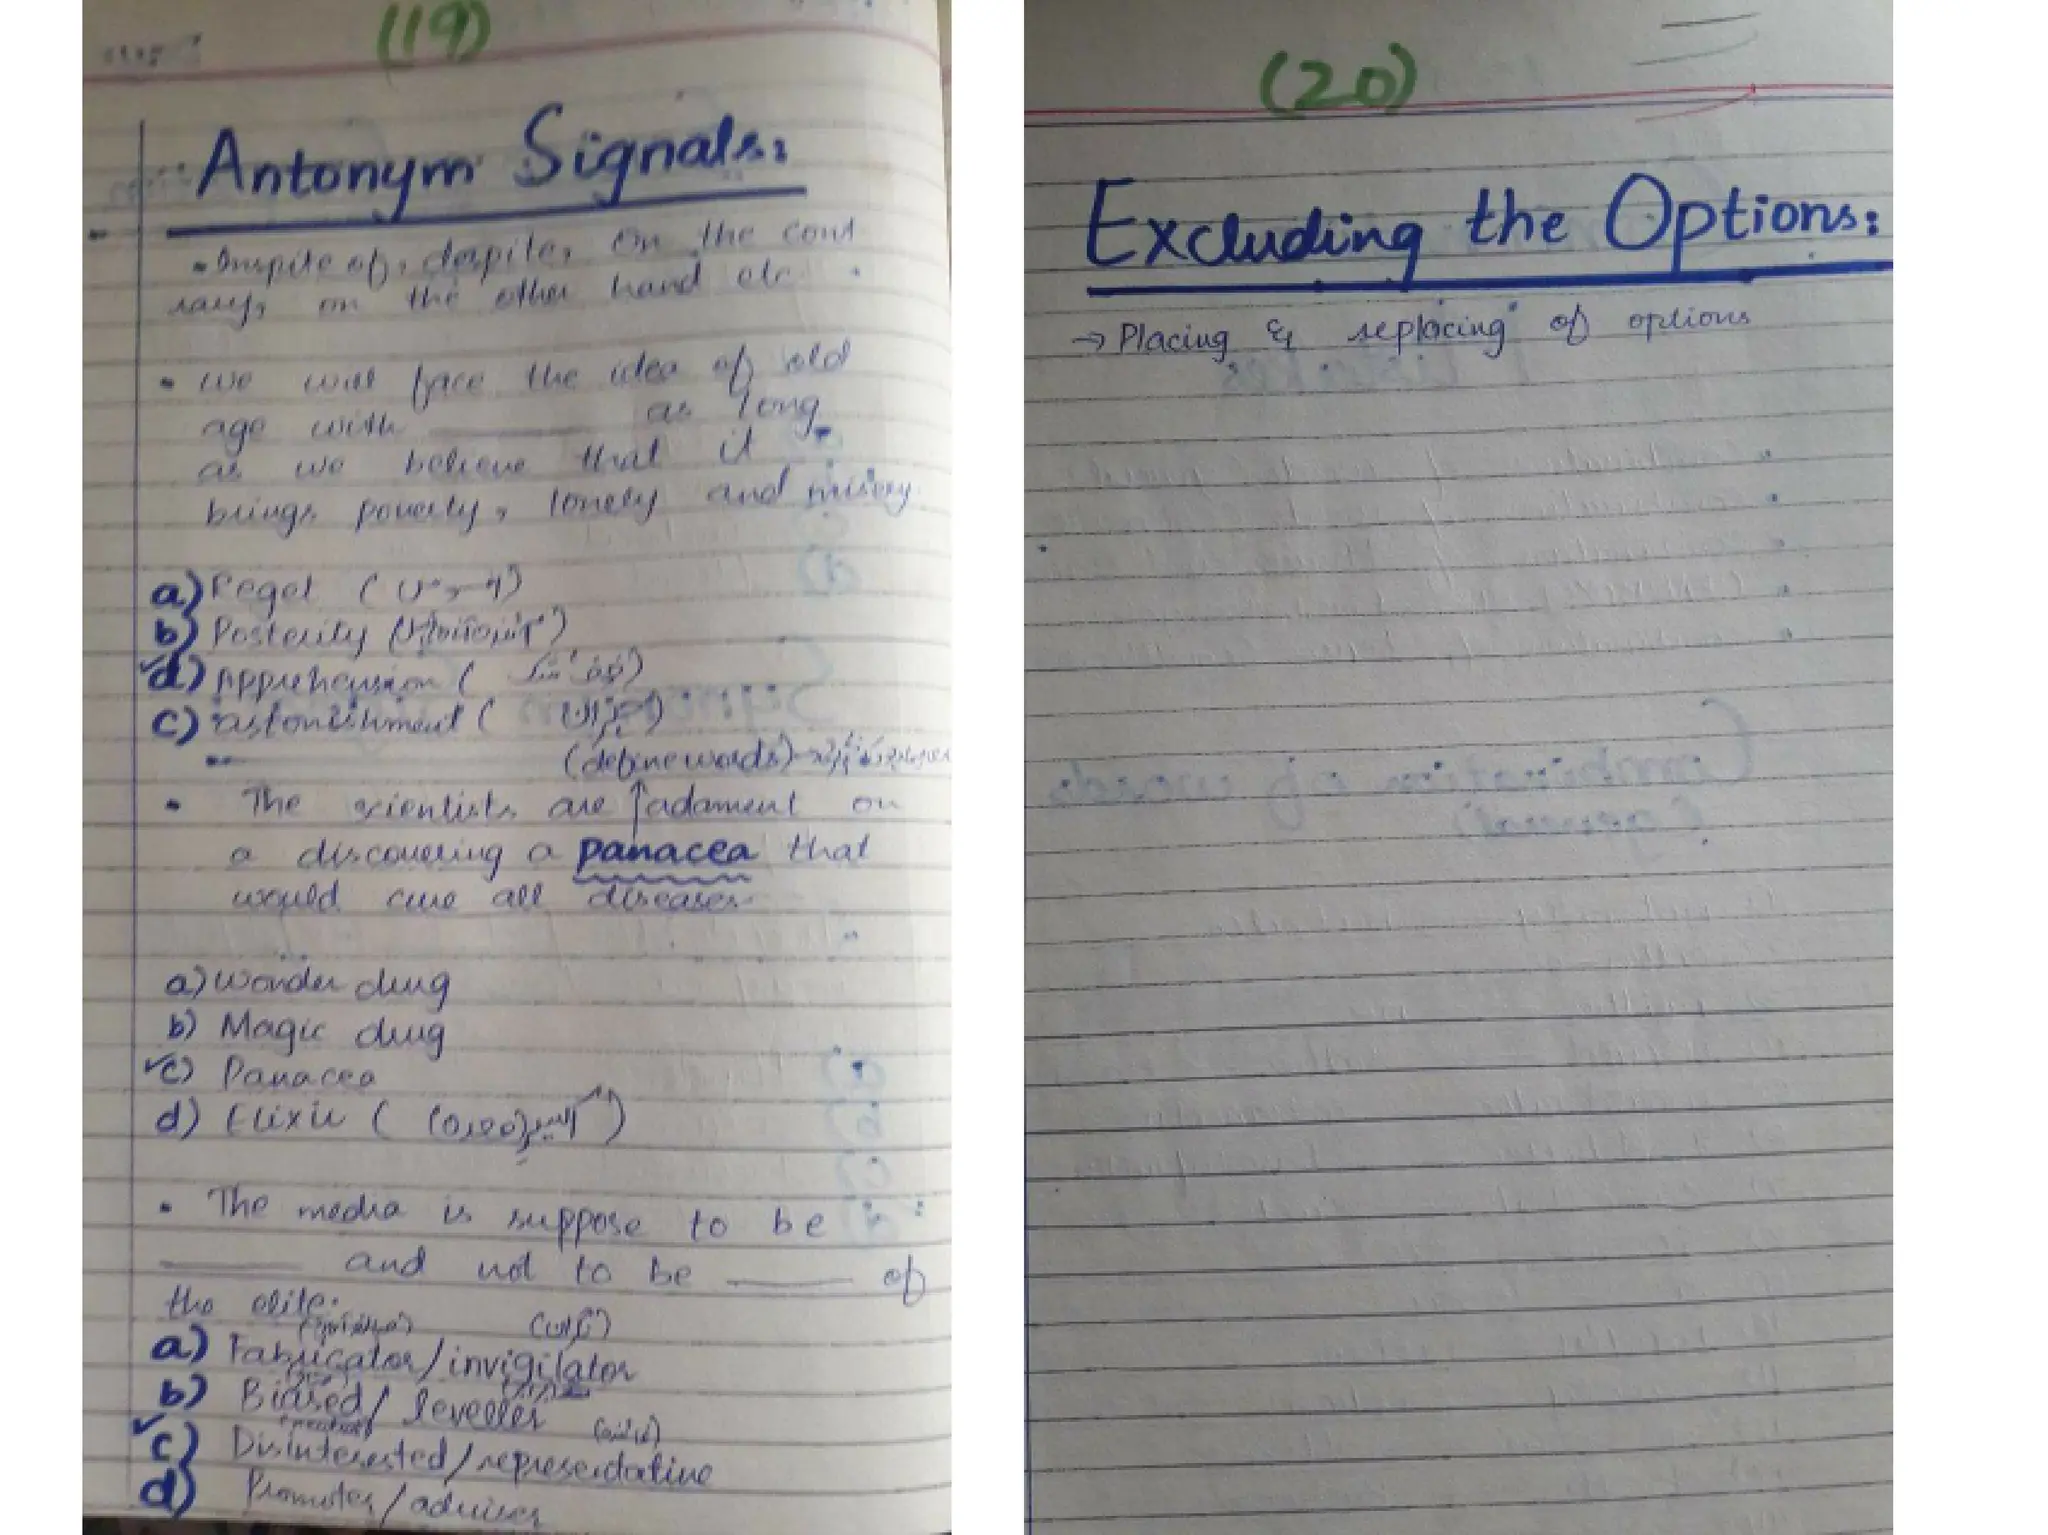 (19)
Antonym Signals:
Inspite of, despite, on the cont
rary, on the other hand etc.
• we will face the idea of old
age with ______ as long
as we believe that it
brings poverty, lonely and misery
a) Reget
b) Posterity
d) Apprehension (
c) astonishment (
(define words)→
• The scientists are adament on
a discovering a panacea that
would cure all diseases.
a) Wonder drug
b) Magic drug
c) Panacea
d) Elixir (
• The media is suppose to be
______ and not to be ______ of
the elite.
a) Fabricator/invigilator
b) Biased/leveller
c) Disinterested/representative
d) Promoter/adviser
(20)
Excluding the Options:
→ Placing & replacing of options